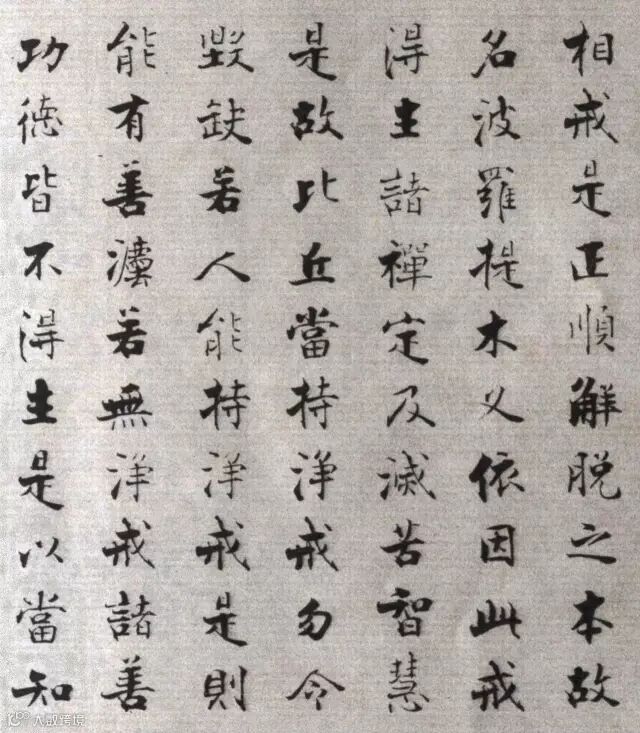 相戒是正順解脱之本故
名波羅提木叉依因此戒
得生諸禪定及滅苦智慧
是故比丘當持淨戒勿令
毀缺若人能持淨戒是則
能有善灋若無淨戒諸善
功德皆不得生是以當知
大数跨境